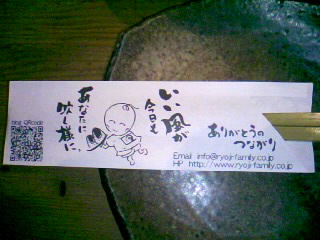 いい風が
今日も
あなたに
吹く様に。
ありがとうの
つながり
Email info@ryoji-family.co.jp
HP http://www.ryoji-family.co.jp
blog QRcode